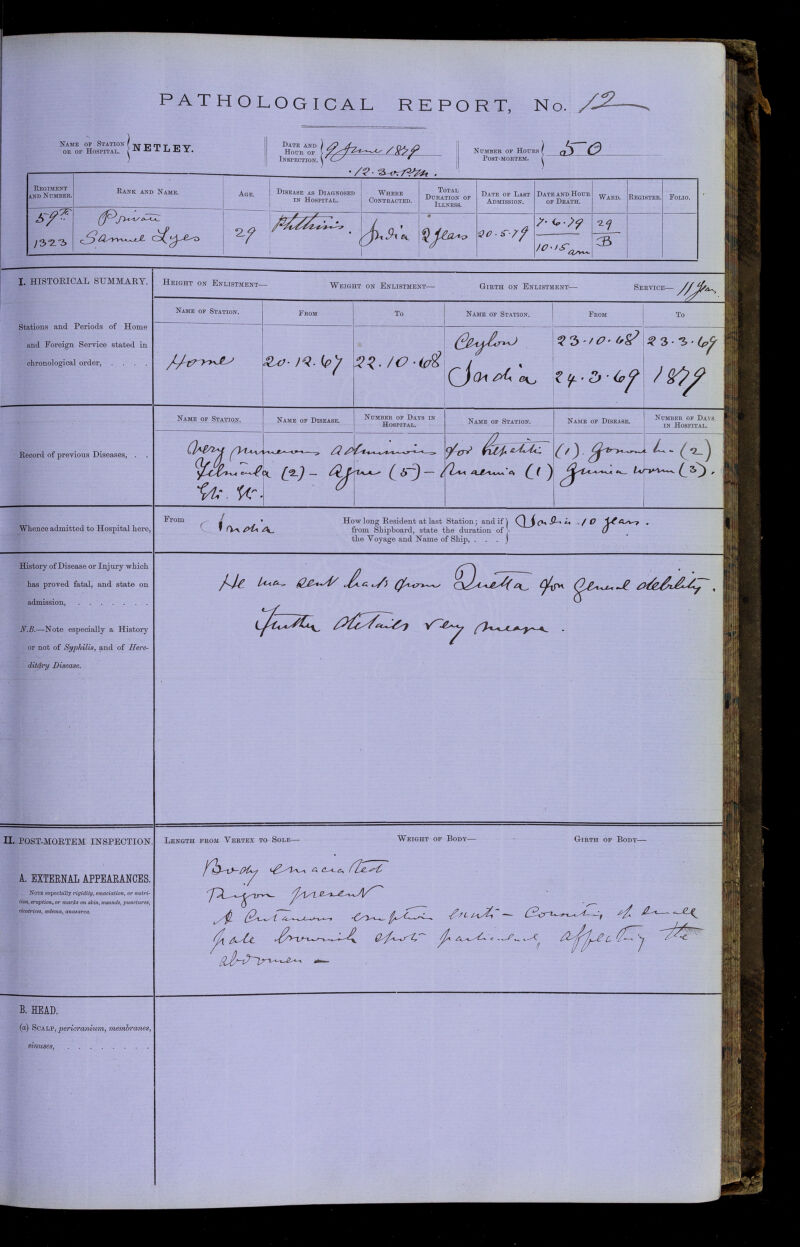 PATHOLOGICAL REPORT, No. 12
NAME OF STATION OR OF HOSPITAL. NETLEY.
DATE AND HOUR OF INSPECTION. 9 June 1879
12.30.P.M.
NUMBER OF HOURS POST-MORTEM. 50
REGIMENT AND NUMBER. RANK AND NAME. AGE. DISEASE AS DIAGNOSED IN HOSPITAL. WHERE CONTRACTED. TOTAL DURATION OF ILLNESS. DATE OF LAST ADMISSION. DATE AND HOUR OF DEATH. WARD. REGISTER. FOLIO.
59th Private Phthisis. India 2 years 20.5.79 7.6.79 29
1323 Samuel Lyes 29 10.15 am B
I. HISTORICAL SUMMARY. HEIGHT ON ENLISTMENT— WEIGHT ON ENLISTMENT— GIRTH ON ENLISTMENT— SERVICE— 11 years
NAME OF STATION. FROM TO NAME OF STATION. FROM TO
Stations and Periods of Home
and Foreign Service stated in
chronological order, . . . .
Home 20.12.67 22.10.68 Ceylon 23.10.68 23.3.69
India 24.3.69 1879
NAME OF STATION. NAME OF DISEASE. NUMBER OF DAYS IN HOSPITAL. NAME OF STATION. NAME OF DISEASE. NUMBER OF DAYS IN HOSPITAL.
Record of previous Diseases, . .
Very numerous admissions for hepatitis (1). (2)
Febricula (2) - Ague (5) - Anaemia (1) Guinea worm (3).
Etc. Etc.
Whence admitted to Hospital here,
From India
How long Resident at last Station; and if
from Shipboard, state the duration of
the Voyage and Name of Ship, . . .
India 10 years.
History of Disease or Injury which
has proved fatal, and state on
admission, . . . . . . .
N.B.—Note especially a History
or not of Syphilis, and of Here-
ditary Disease.
He was sent back from Quetta for general debility.
Further details very meagre.
II. POST-MORTEM INSPECTION. LENGTH FROM VERTEX TO SOLE— WEIGHT OF BODY— GIRTH OF BODY—
A. EXTERNAL APPEARANCES.
NOTE especially rigidity, emaciation, or nutri-
tion, eruption, or marks on skin, wounds, punctures,
cicatrices, œdema, anasarca.
Body emaciated
Rigor present
A Cutaneous eruption exists - Consisting of small
pale brownish spots particularly affecting the
abdomen -
B. HEAD.
(a) SCALP, pericranium, membranes,
sinuses, . . . . . . . .